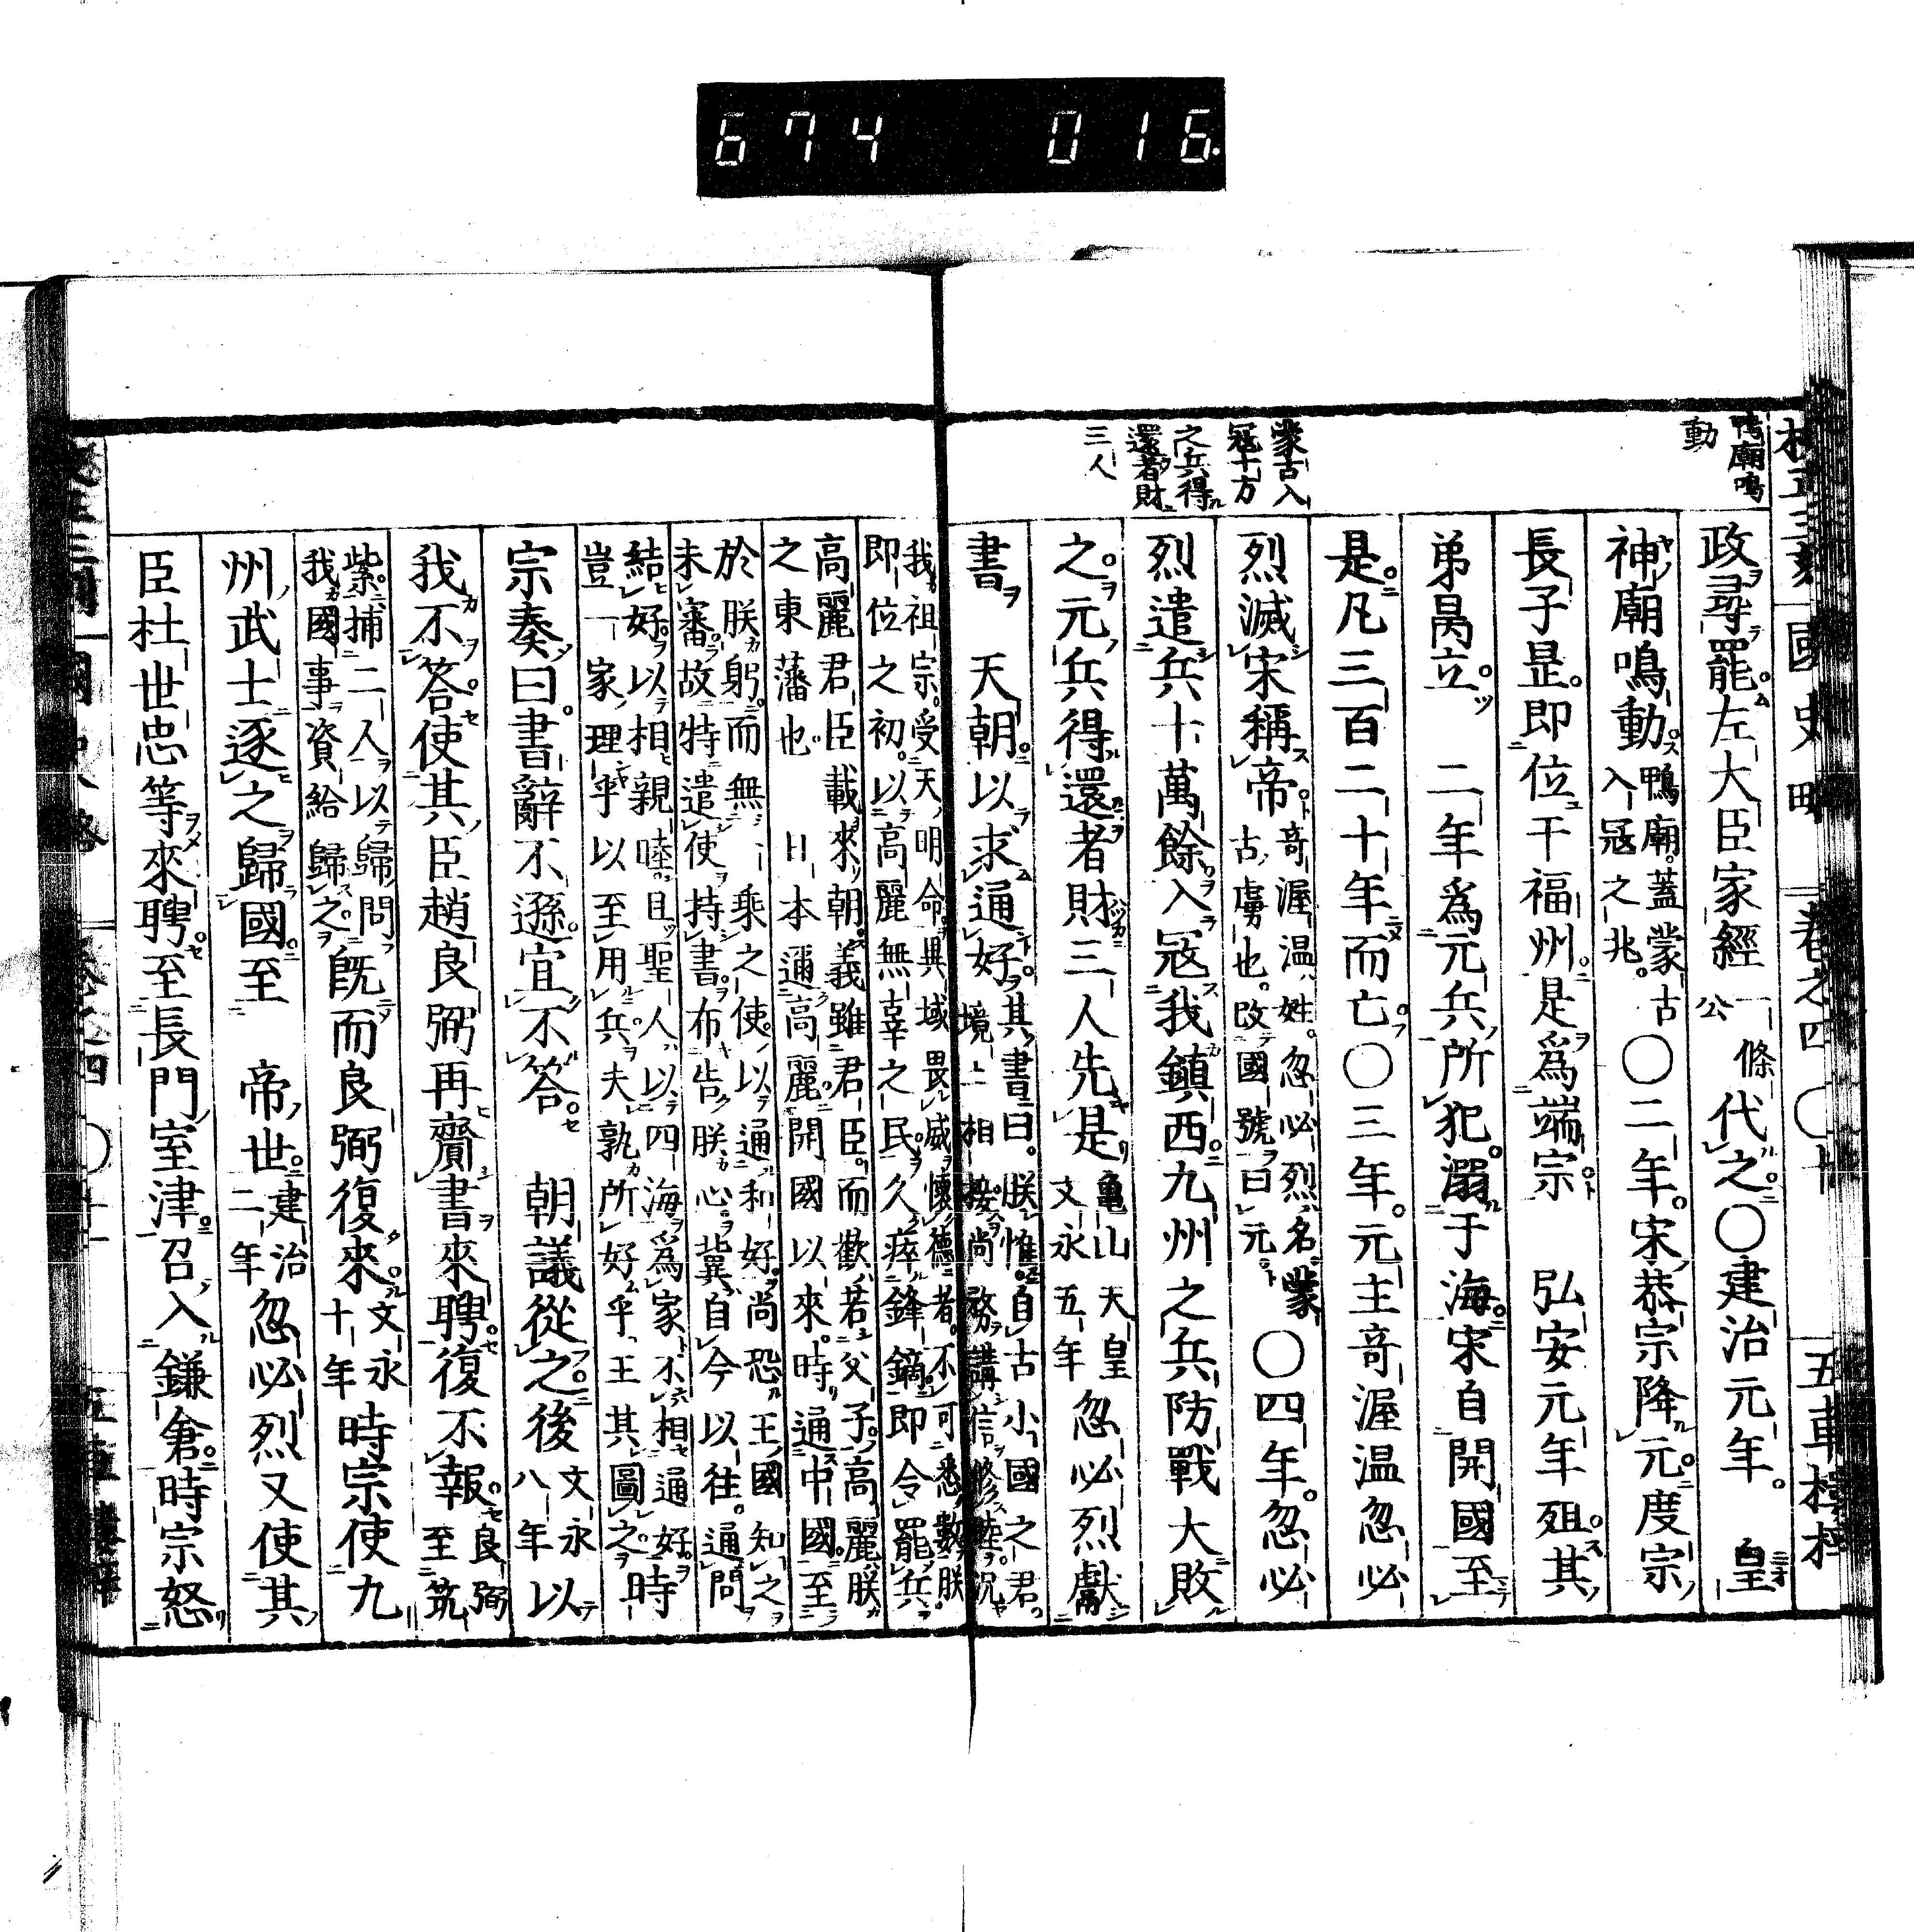 674 016
國史略 卷之四 〇十 五車樓梓
鴨廟鳴
動
蒙古入
冦十万
之兵得
還者財
三人
政尋罷左大臣家經一條公代之〇建治元年 皇
神廟鳴動鴨廟蓋蒙古入冦之兆〇二年宋恭宗降元度宗
長子昰即位于福州是爲端宗 弘安元年殂其
弟昺立 二年爲元兵所犯溺于海宋自開國至
是凡三百二十年而亡〇三年元主竒渥温忽必
烈滅宋稱帝竒渥温姓忽必烈名蒙古虜也改國號曰元〇四年忽必
烈遣兵十萬餘入冦我鎮西九州之兵防戰大敗
之元兵得還者財三人先是亀山天皇文永五年忽必烈獻
書 天朝以求通好其書曰朕惟自古小國之君境土相接尚務講信修睦况
我祖宗受天明命奄域畏威懷德者不可悉數朕
即位之初以高麗無辜之民久瘁鋒鏑即令罷兵
高麗君臣載來朝義雖君臣而歡若父子高麗朕
之東藩也 日本邇高麗開國以來時通中國至
於朕躬而無一乘之使以通和好尚恐王國知之
未審故特遣使持書布告朕心冀自今以往通問
結好以相親睦且聖人以四海爲家不相通好
豈一家理乎以至用兵夫孰所好乎王其圖之時
宗奏曰書辭不遜宜不答 朝議從之後文永八年以
我不答使其臣趙良弼再齎書來聘復不報良弼至筑
紫捕二人以歸問我國事資給歸之既而良弼復來文永十年時宗使九
州武士逐之歸國至 帝世建治二年忽必烈又使其
臣杜世忠等來聘至長門室津召入鎌倉時宗怒